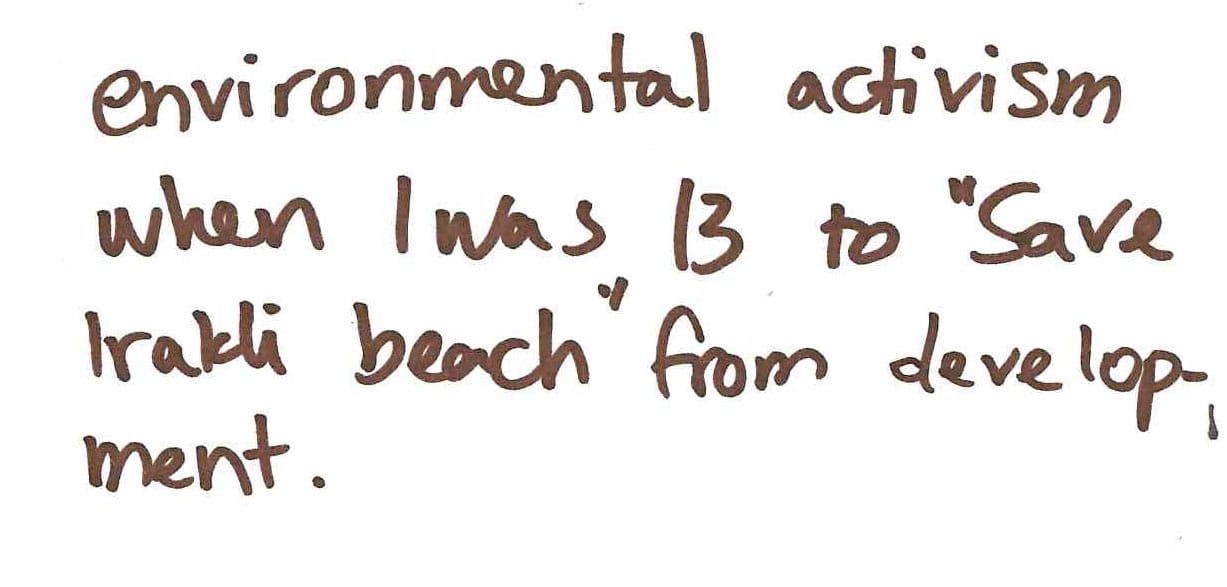 environmental activism
when I was 13 to "Save
Irakli beach" from develop-
ment.